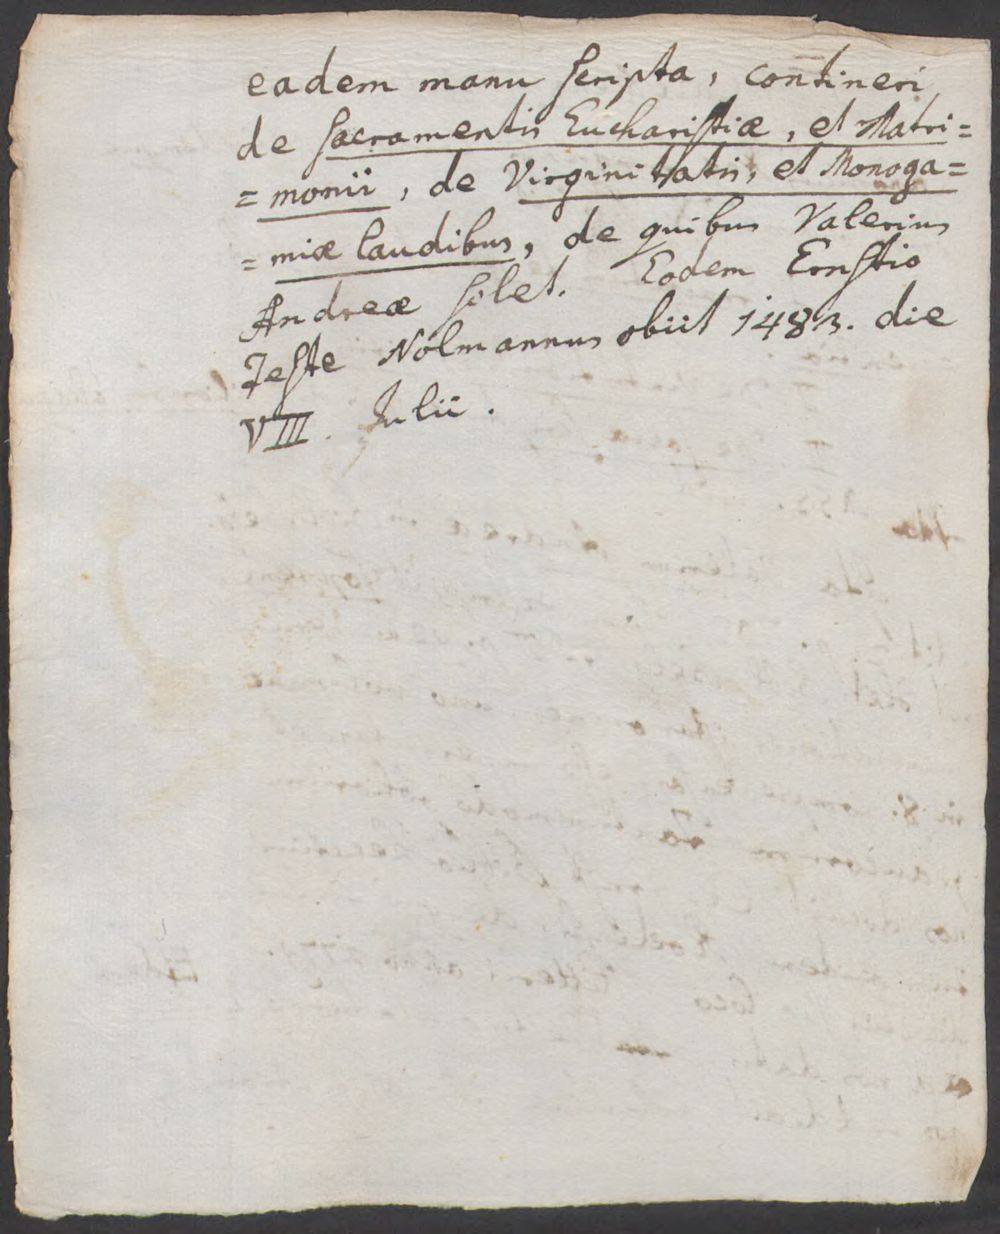 eadem manu scripta, contineri
de sacramentis Eucharistiæ, et Matri=
=monii, de Virginitatis, et Monoga=
=miæ laudibus, de quibus Valerius
Andreæ silet. Eodem Ernstio
Teste Nolmannus obiit 1483. die
VIII. Julii.